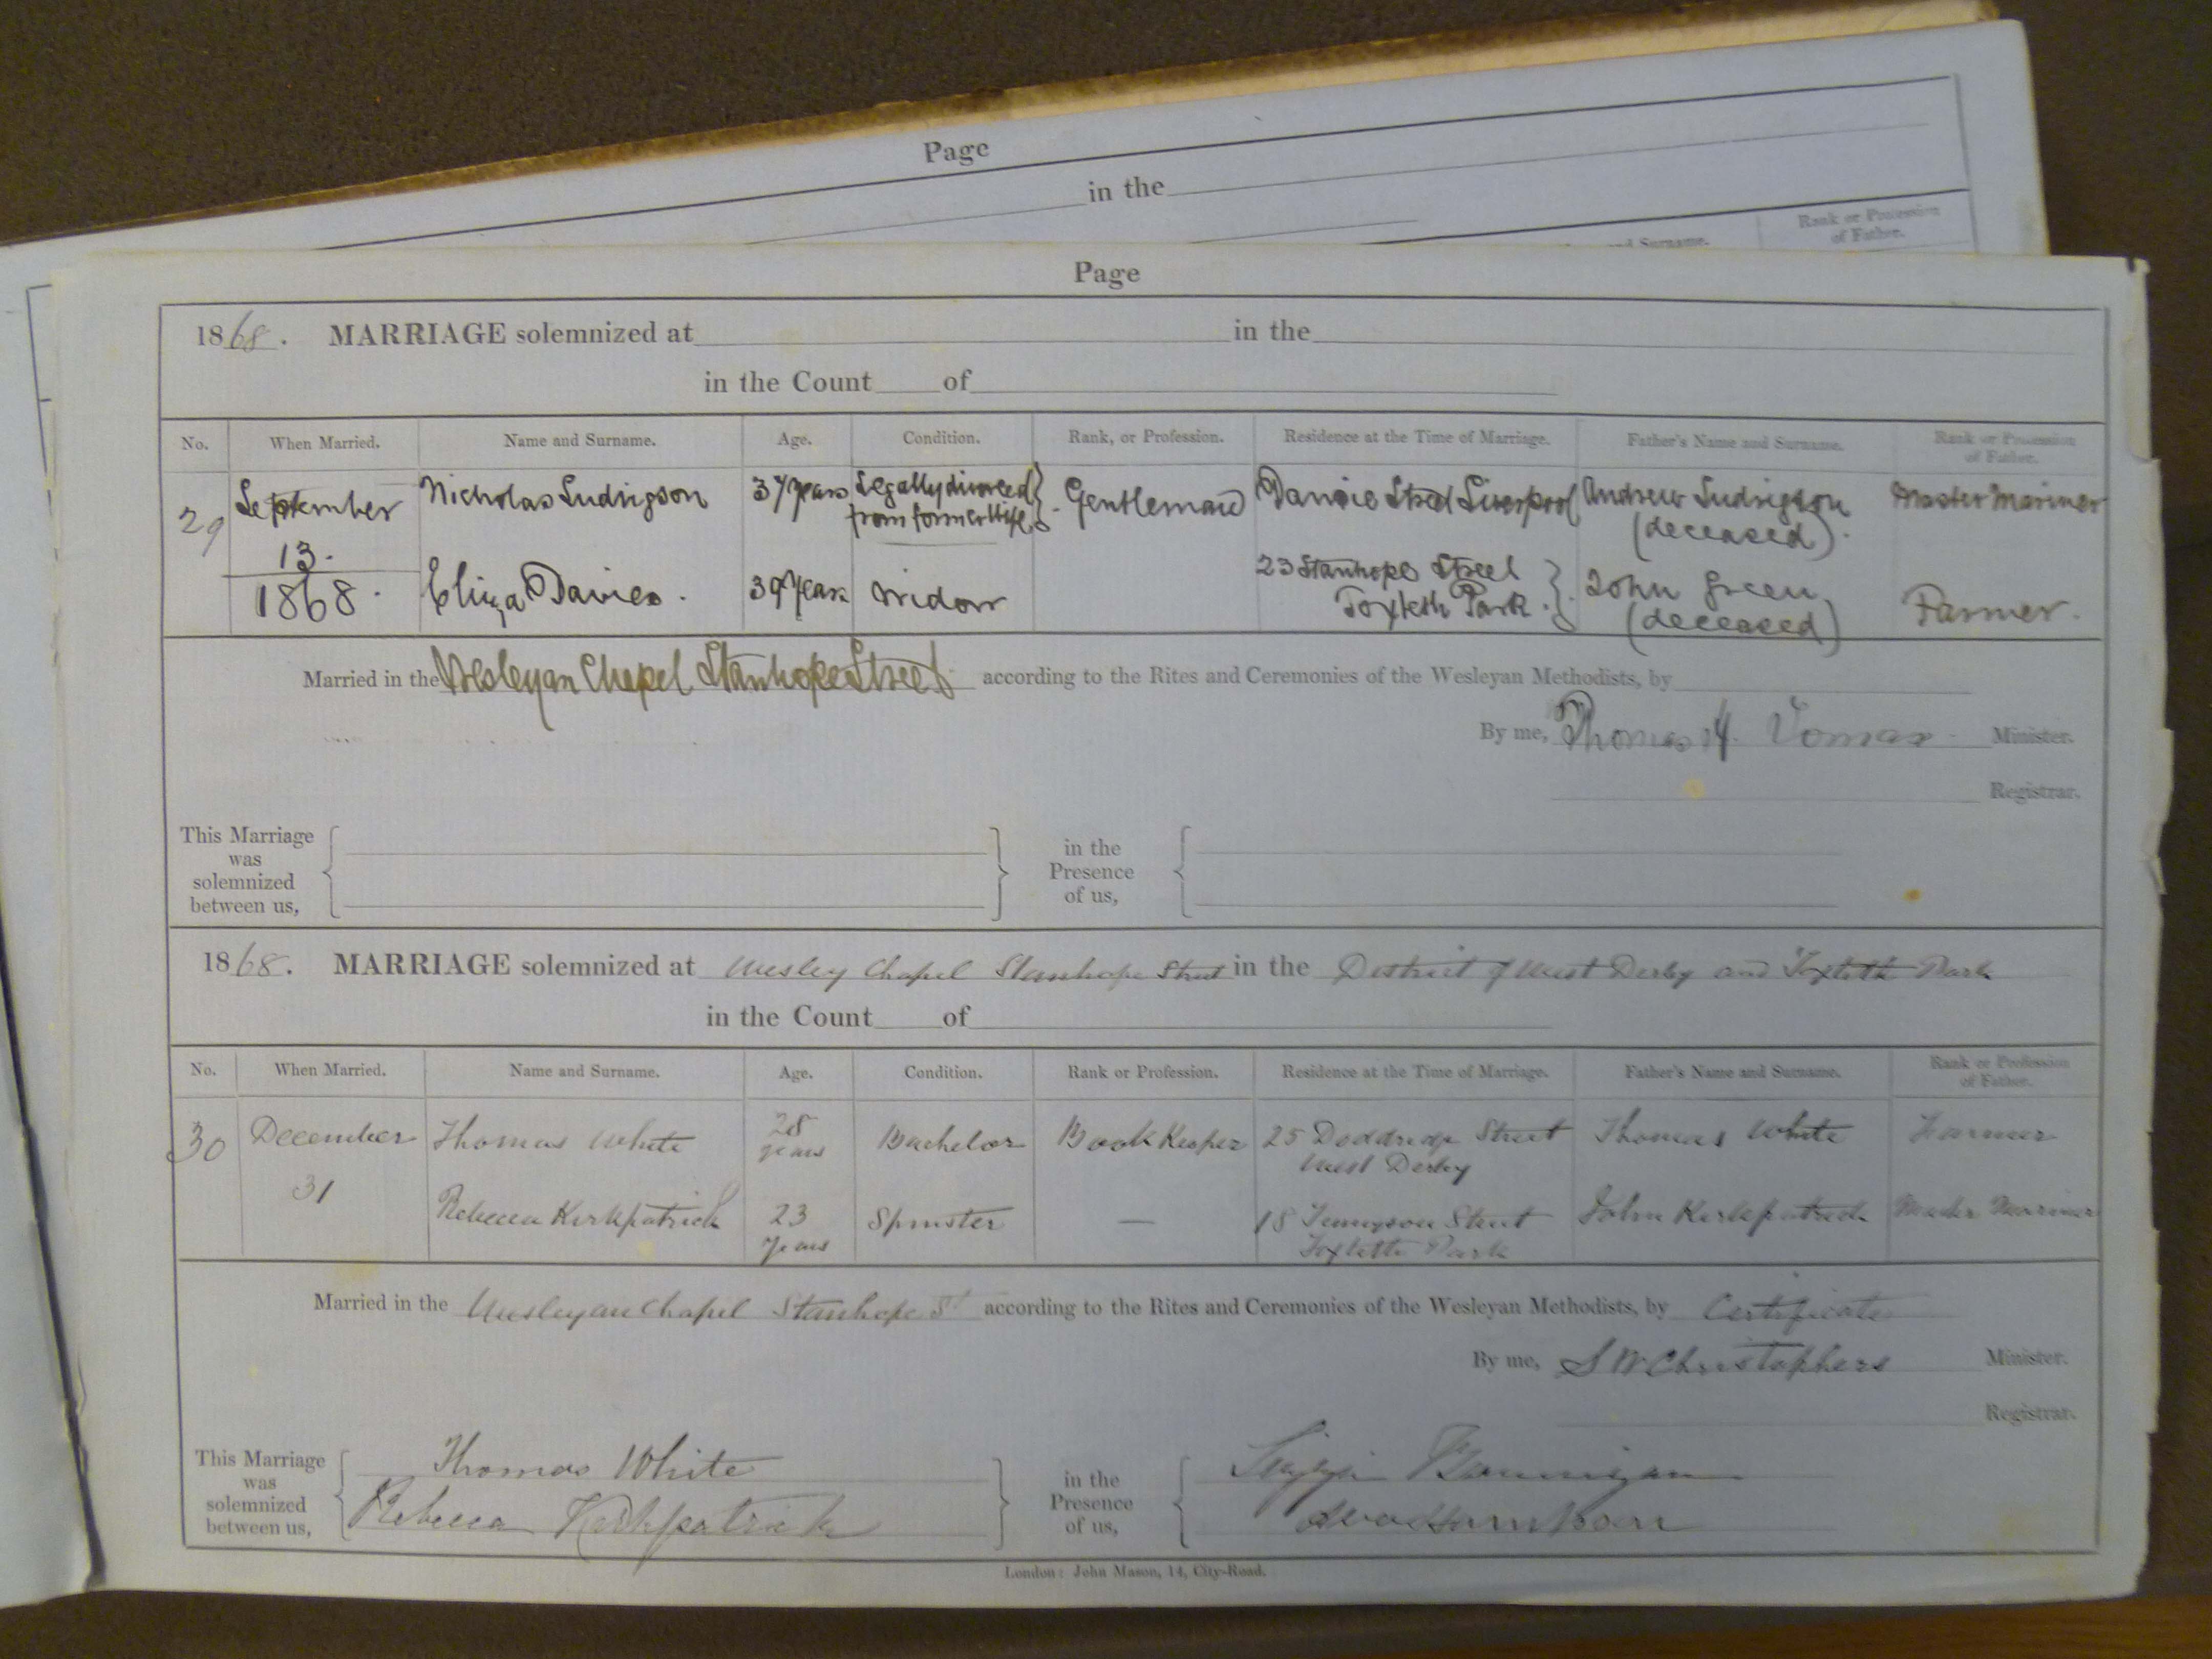 Page
in the
and Surname.
Rank or Profession
of Father.
Page
1868. MARRIAGE solemnized at in the
in the Count of
No. When Married. Name and Surname. Age. Condition. Rank, or Profession. Residence at the Time of Marriage. Father's Name and Surname. Rank or Profession of Father.
29 September 13. 1868. Nicholas Ludvigson 37 years Legally divorced from former Wife } Gentleman Street Liverpool Andrew Ludvigson (deceased). Master Mariner
Eliza Davies. 39 Years Widow 23 Stanhope Street Toxteth Park. } John Green (deceased) Farmer.
Married in the Wesleyan Chapel Stanhope Street according to the Rites and Ceremonies of the Wesleyan Methodists, by
By me, Thomas Minister.
Registrar.
This Marriage was solemnized between us, in the Presence of us,
1868. MARRIAGE solemnized at Wesley Chapel Stanhope Street in the District of West Derby and Toxteth Park
in the Count of
No. When Married. Name and Surname. Age. Condition. Rank or Profession. Residence at the Time of Marriage. Father's Name and Surname. Rank or Profession of Father.
30 December 31 Thomas White 28 years Bachelor Book Keeper 25 Doddridge Street West Derby Thomas White Farmer
Rebecca Kirkpatrick 23 years Spinster — 18 Tennyson Street Toxteth Park John Kirkpatrick Master Mariner
Married in the Wesleyan Chapel Stanhope St according to the Rites and Ceremonies of the Wesleyan Methodists, by Certificate
By me, S W Christophers Minister.
Registrar.
This Marriage was solemnized between us, Thomas White
Rebecca Kirkpatrick
in the Presence of us,
London: John Mason, 14, City-Road.